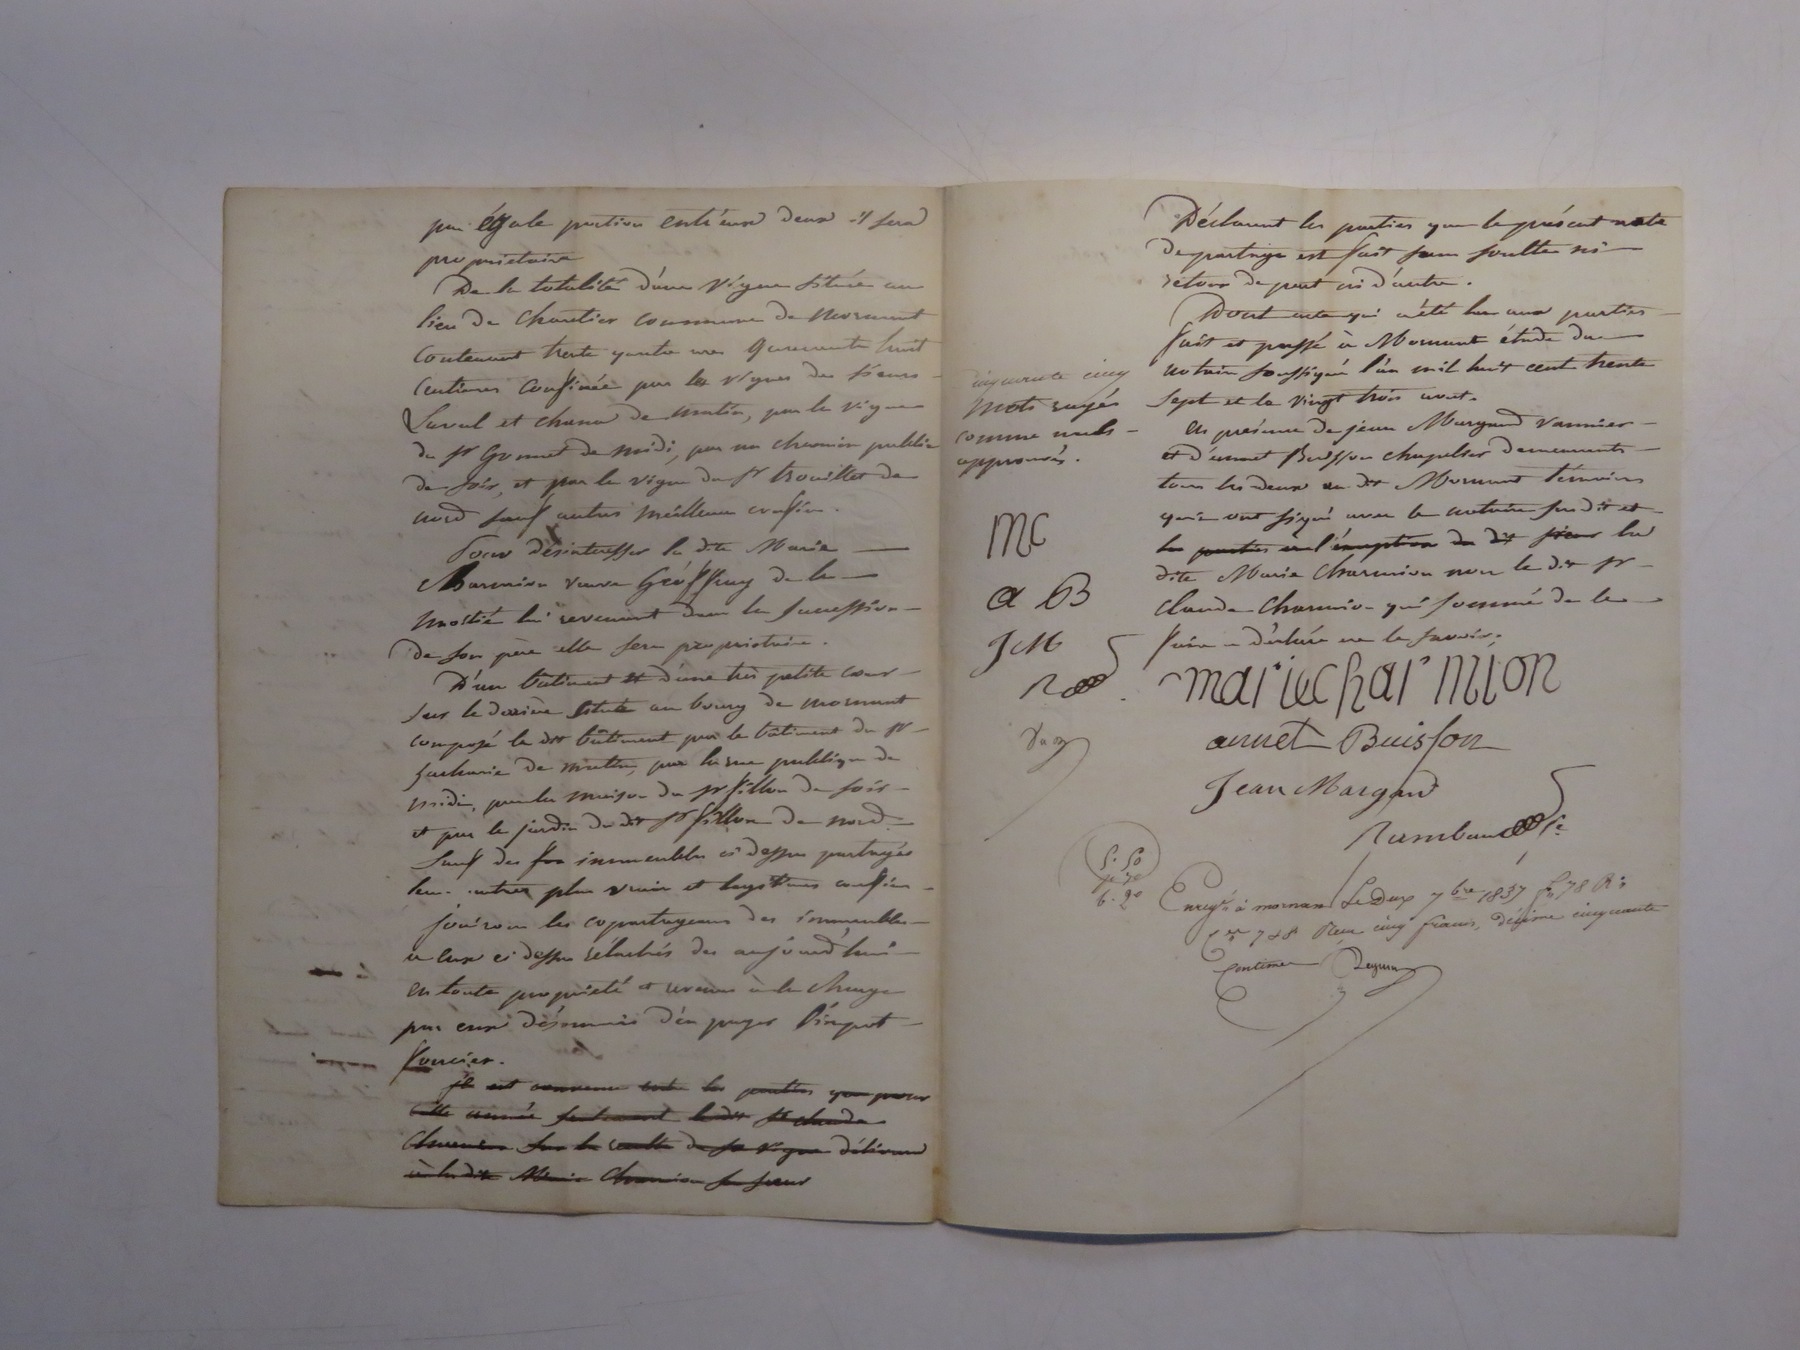 par égale portion entr'eux deux il sera
propriétaire
De la totalité d'une vigne située au
lieu de Chantier commune de Mornant
contenant trente quatre ares quarante huit
centiares confinée par les vignes des sieurs
Laval et chana de matin, par la vigne
du sr Gonnet de midi, par un chemin public
de soir, et par la vigne du sr trouillet de
nord sauf autres meilleurs confins.
Pour désintéresser la dite Marie
Charmion veuve Géoffray de la
moitié lui revenant dans la succession
de son père elle sera propriétaire.
D'un bâtiment et d'une très petite cour
sur le derrière situés au bourg de mornant
composé le dit bâtiment par le bâtiment du sr
Zacharie de matin, par la rue publique de
midi, par la maison du sr fillon de soir
et par le jardin du dit sr fillon de nord
Sauf des immeubles ci dessus partagés
leurs autres plus vrais et legitimes confins
Jouiront les copartageans des immeubles
à eux ci dessus relachés dès aujourd'hui
en toute propriété et revenus à la charge
par eux désormais d'en payer l'impot
foncier.
il est convenu entre les parties que pour
cette année seulement le dit sr claude
Charmion sur la récolte de sa vigne délivrera
à la dite Marie Charmion sa soeur
cinquante cinq
mots rayés
comme nuls
approuvés.
MC
a B
JM
R
Déclarent les parties que le présent acte
de partage est fait sans soulte ni
retour de part ni d'autre.
Dont acte qui a été lu aux parties
fait et passé à Mornant étude du
notaire soussigné l'an mil huit cent trente
sept et le vingt trois aout.
En présence de jean Margand vannier
et d'annet Buisson chapelier demeurants
tous les deux au dit Mornant témoins
qui ont signé avec le notaire susdit et
les parties à l'exception du dit sieur la
dite Marie Charmion non le dit sr
Claude Charmion qui sommé de le
faire a déclaré ne le savoir.
marie charmion
annet Buisson
Jean Margand
Rambaud
5. 50
6. 20
Enregé à mornant Le Deux 7bre 1837 fo 78 Ro
Cse 7 & 8 Reçu cinq francs, décime cinquante
centimes